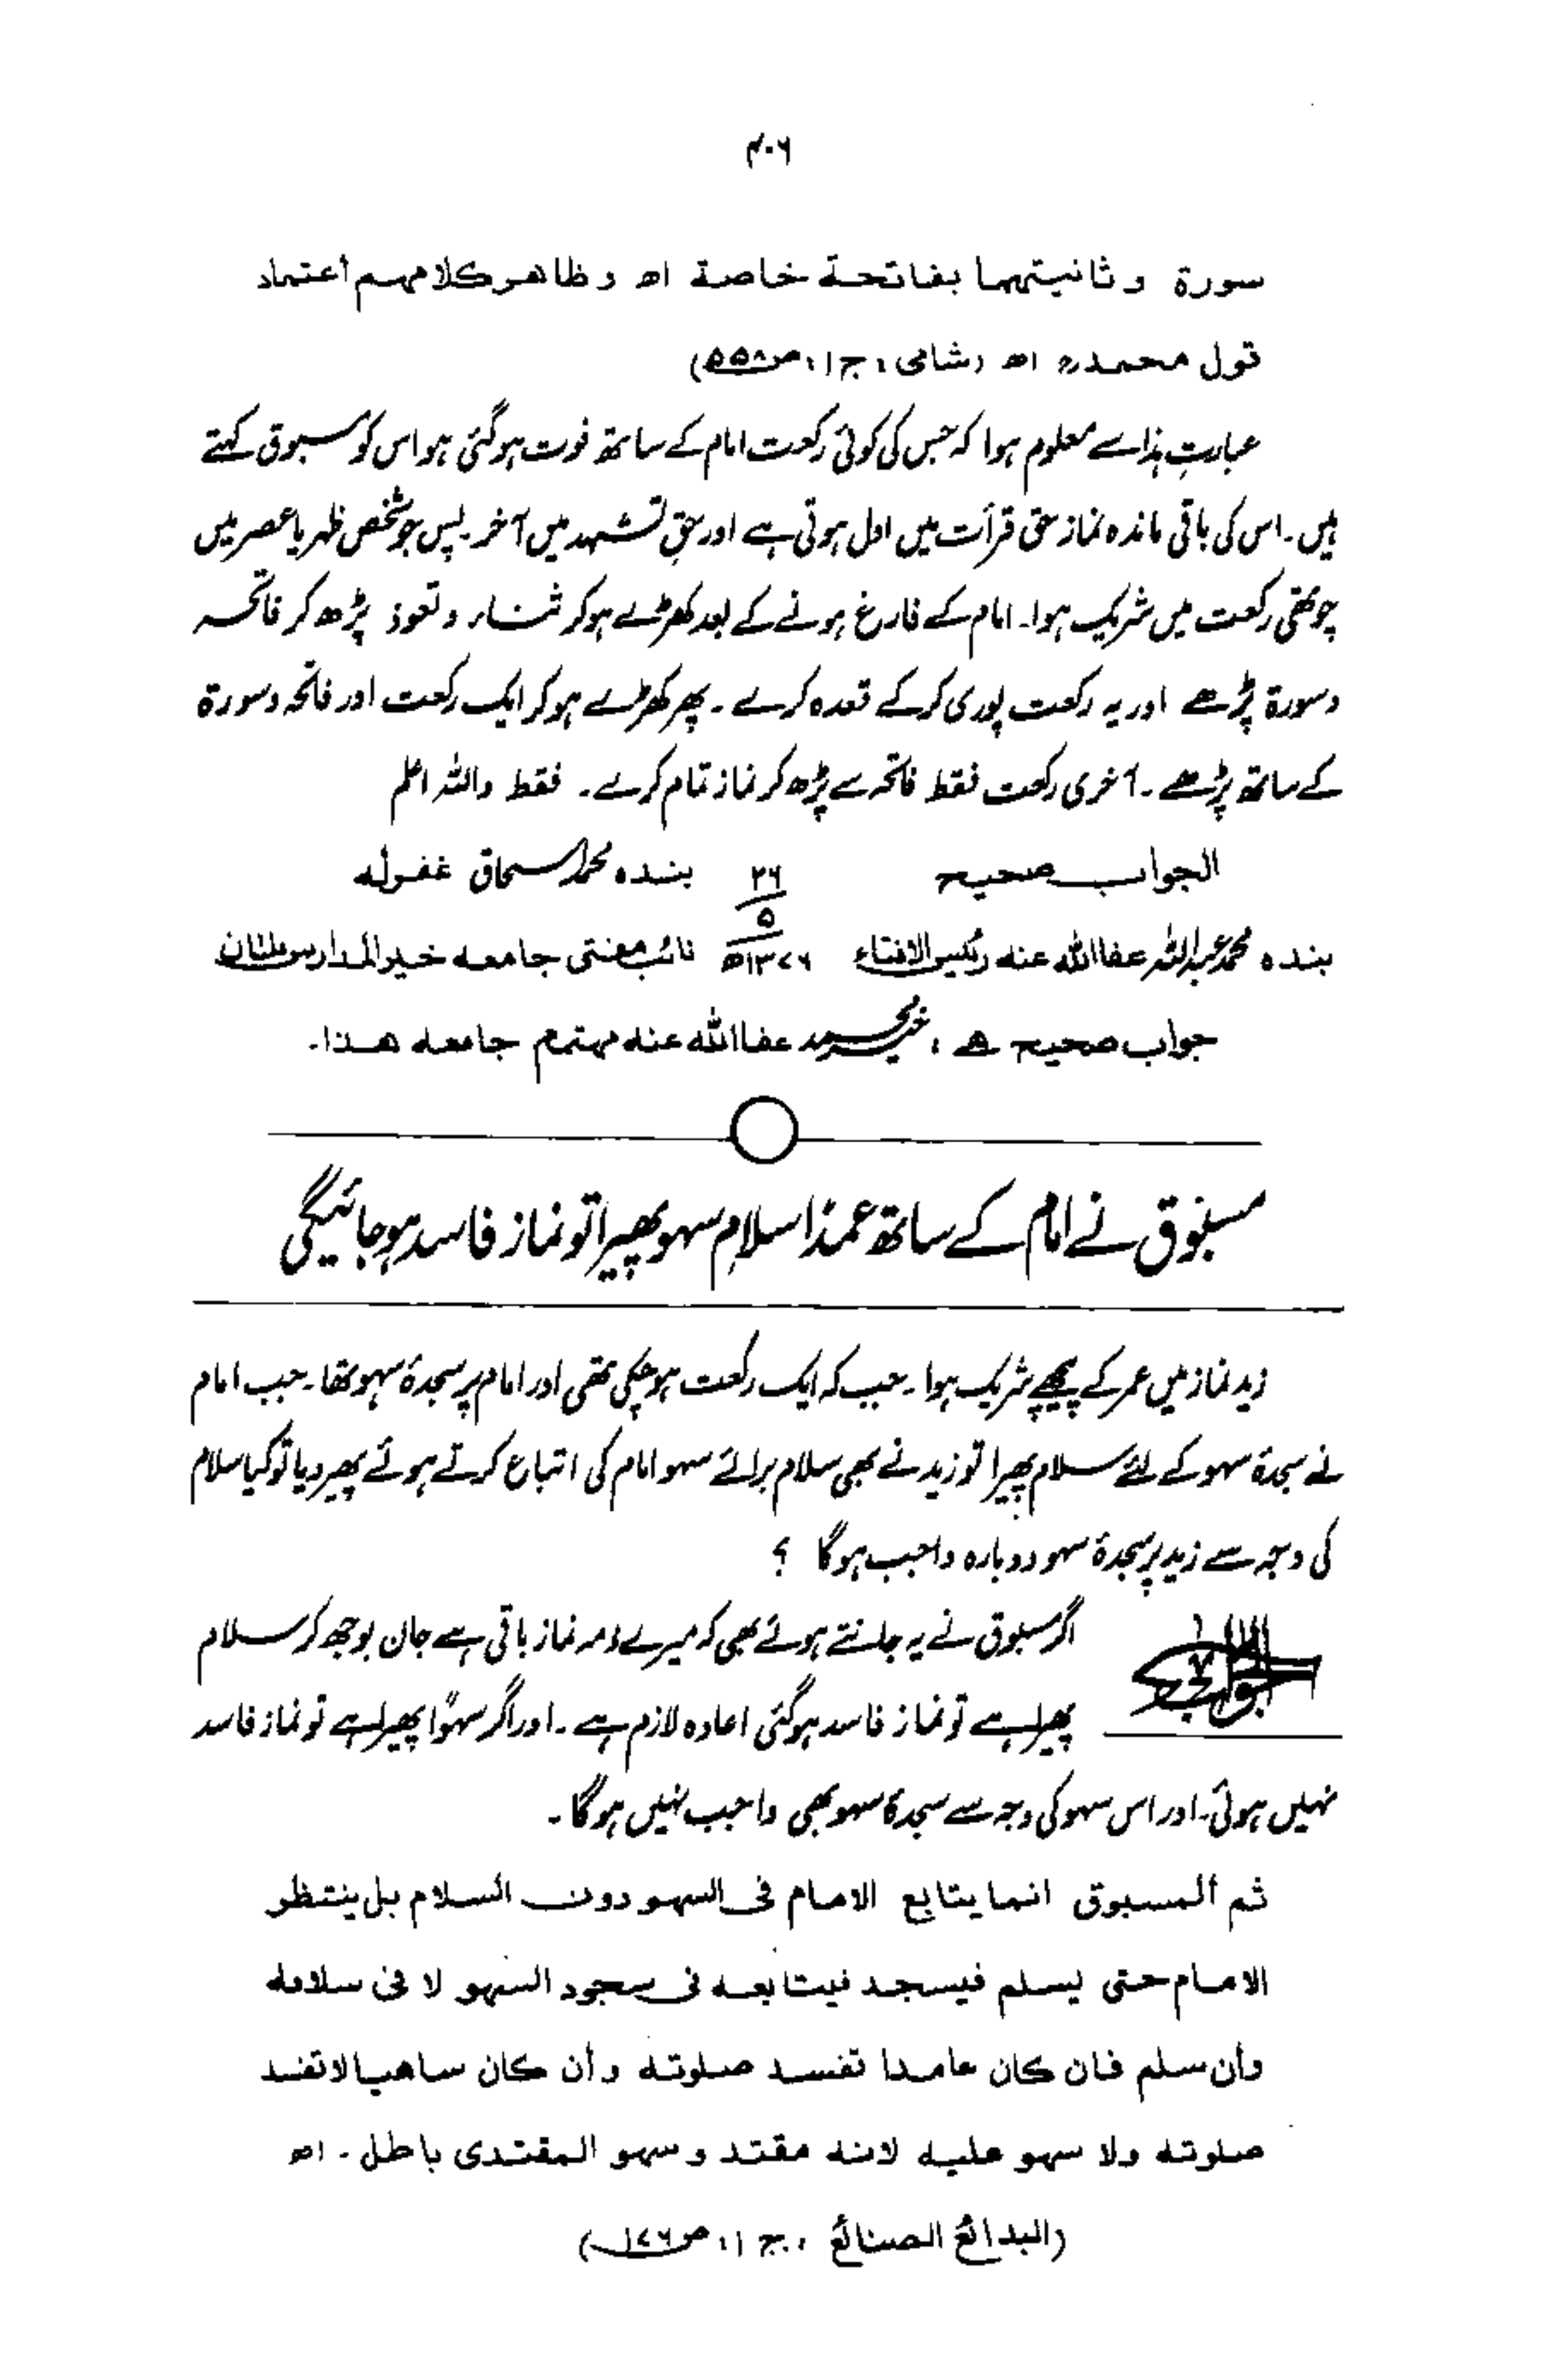 ۴۰۶
سورة وثانيتهما بفاتحة خاصة اھ وظاهر كلامهم أعتماد
قول محمدؒ اھ (شامی، ج۱، ص۵۵۸)
عبارتِ ہذا سے معلوم ہوا کہ جس کی کوئی رکعت امام کے ساتھ فوت ہوگئی ہو اس کو مسبوق کہتے
ہیں۔ اس کی باقی ماندہ نماز حق قرأت میں اول ہوتی ہے اور حقِ تشہد میں آخر۔ پس جو شخص ظہر یا عصر میں
چوتھی رکعت میں شریک ہوا۔ امام کے فارغ ہونے کے بعد کھڑے ہوکر ثناء وتعوذ پڑھ کر فاتحہ
وسورۃ پڑھے اور یہ رکعت پوری کرکے قعدہ کرے۔ پھر کھڑے ہوکر ایک رکعت اور فاتحہ وسورۃ
کے ساتھ پڑھے۔ آخری رکعت فقط فاتحہ سے پڑھ کر نماز تمام کرے۔ فقط واللہ اعلم
الجواب صحیح ۲۶ بندہ محمد اسحاق غفرلہ
بندہ محمد عبداللہ عفااللہ عنہ رئیس الافتاء ۵ ۱۳۷۶ھ نائب مفتی جامعہ خیر المدارس ملتان
جواب صحیح ہے، خیر محمد عفااللہ عنہ مہتمم جامعہ ھذا۔
مسبُوق نے امام کے ساتھ عمدًا سلامِ سہو پھیرا تو نماز فاسد ہوجائیگی
زید نماز میں عمر کے پیچھے شریک ہوا۔ جب کہ ایک رکعت ہوچکی تھی اور امام پر سجدۂ سہو تھا۔ جب امام
نے سجدۂ سہو کے لئے سلام پھیرا تو زید نے بھی سلام برائے سہو امام کی اتباع کرتے ہوئے پھیر دیا تو کیا سلام
کی وجہ سے زید پر سجدۂ سہو دوبارہ واجب ہوگا ؟
الجواب اگر مسبوق نے یہ جانتے ہوئے بھی کہ میرے ذمہ نماز باقی ہے جان بوجھ کر سلام
پھیرا ہے تو نماز فاسد ہوگئی اعادہ لازم ہے۔ اور اگر سہوًا پھیرا ہے تو نماز فاسد
نہیں ہوئی۔ اور اس سہو کی وجہ سے سجدۂ سہو بھی واجب نہیں ہوگا۔
ثم ألمسبوق انما يتابع الامام فى السهو دون السلام بل ينتظر
الامام حتى يسلم فيسجد فيتابعه فى سجود السهو لا فى سلامه
وأن سلم فان كان عامدا تفسد صلوته وأن كان ساهيا لا تفسد
صلوته ولا سهو عليه لانه مقتد وسهو المقتدى باطل۔ اھ
(البدائع الصنائع، ج۱، ص۱۷۶)